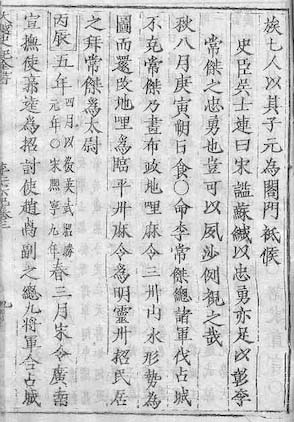 族七人以其子元為閤門祗候
史臣吳士連曰宋謚蘇緘以忠勇亦足以彰李
常傑之忠勇也豈可以夙沙例視之哉
秋八月庚寅朔日食○命李常傑總諸軍伐占城
不克常傑乃畫布政地哩麻令三州山水形勢為
圖而還改地哩為臨平州麻令為明靈州招民居
之拜常傑為太尉
丙辰五年四月以後英武昭勝元年○宋熙寧九年春三月宋令廣南
宣撫使郭逵為招討使趙卨副之總九將軍合占城